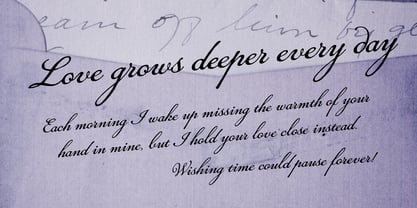 eam of him
Love grows deeper every day
Each morning I wake up missing the warmth of your
hand in mine, but I hold your love close instead.
Wishing time could pause forever!